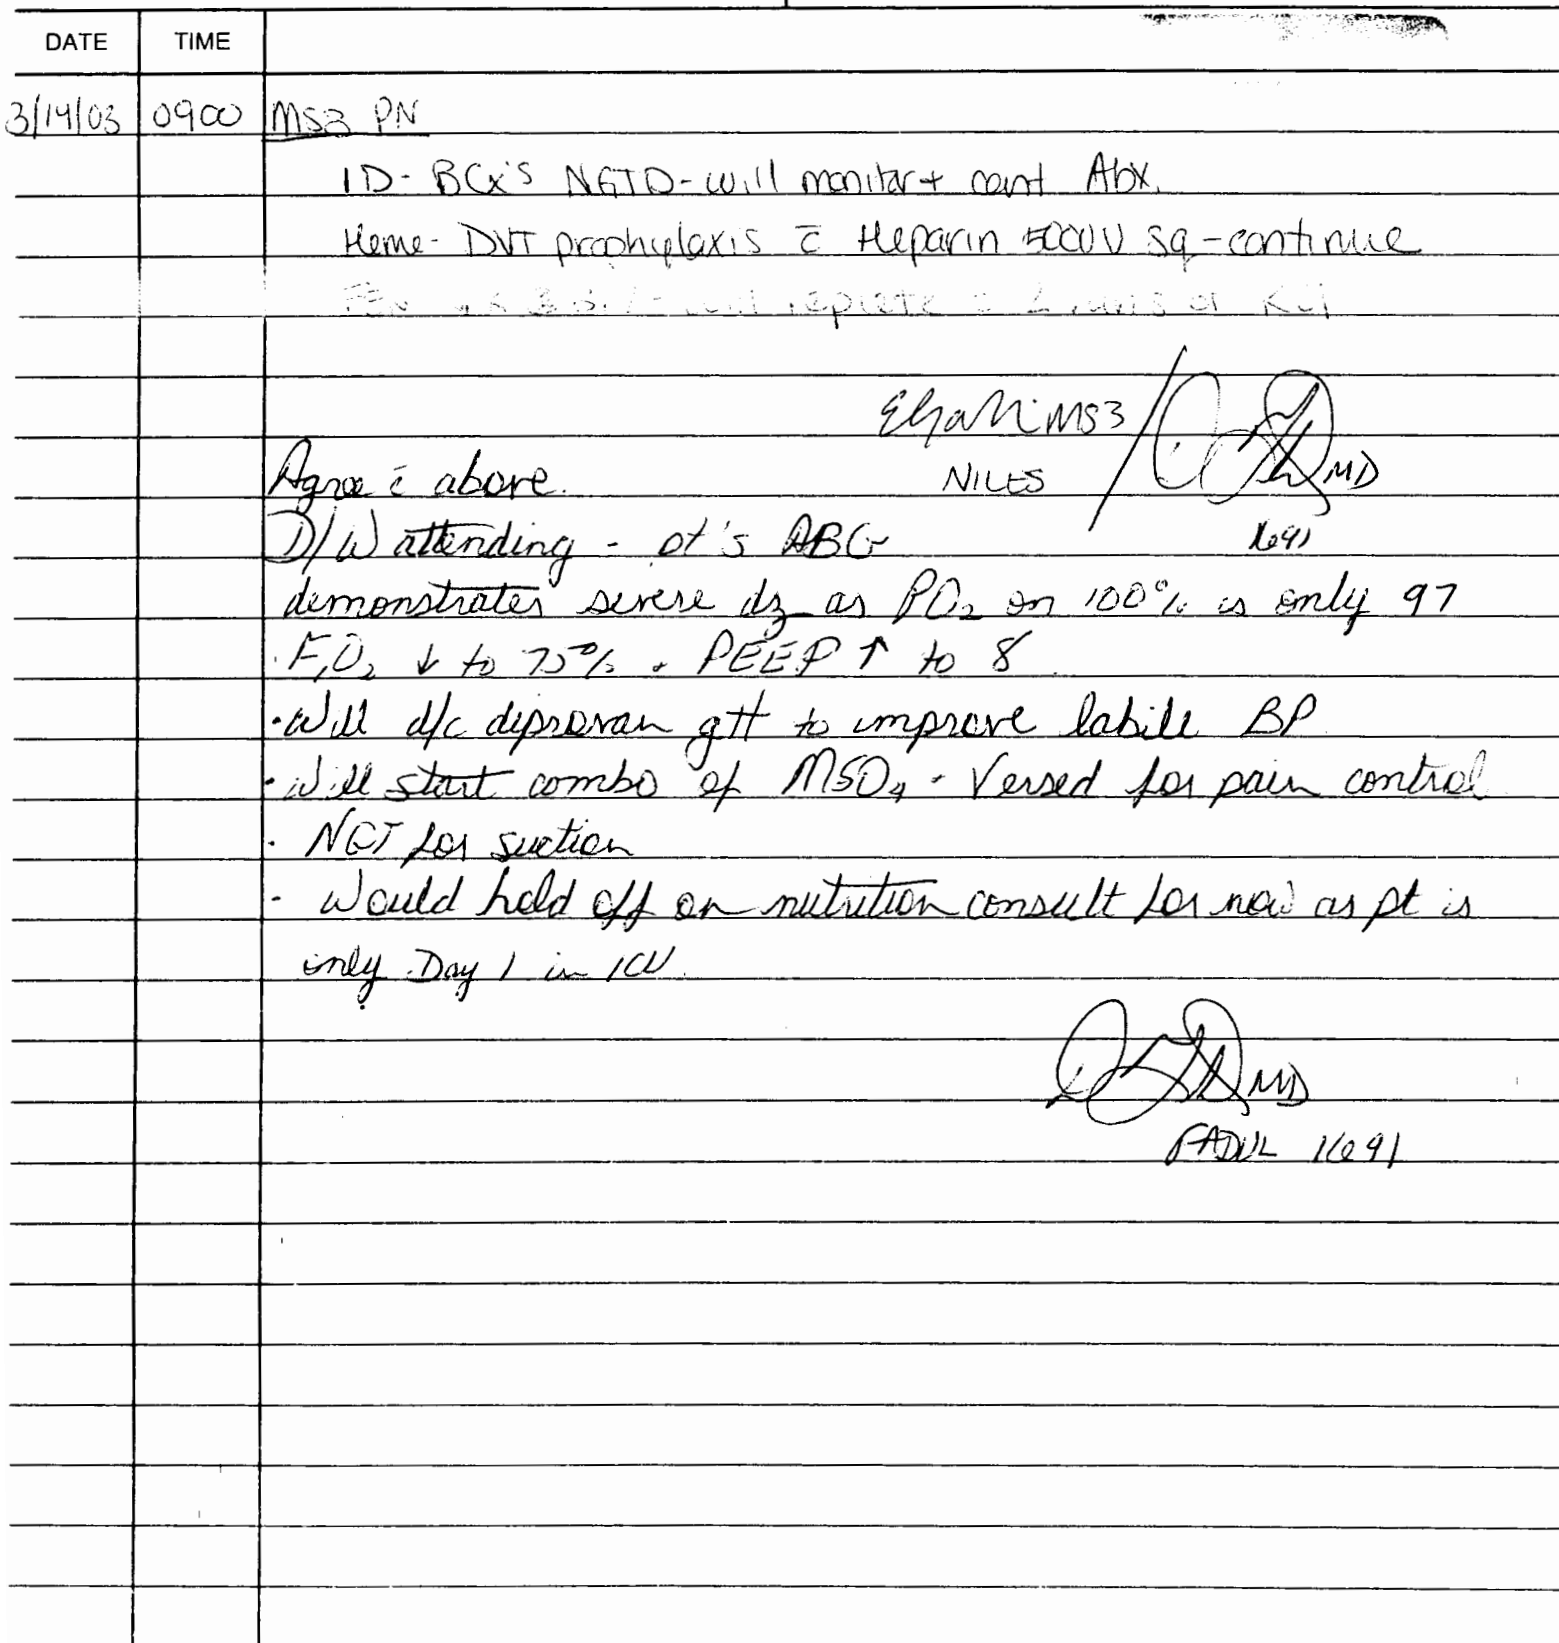 DATE TIME
3/14/03 0900 MS3 PN
ID- BCx's NGTD- will monitor + cont Abx.
Heme- DVT prophylaxis c̄ Heparin 5000U SQ -continue
FEN replete c̄ 2 runs of KCl
MS3 / MD
NILES
1691
Agree c̄ above.
D/W attending - pt's ABG
demonstrates severe dz as PO₂ on 100% is only 97
· FiO₂ ↓ to 75% + PEEP ↑ to 8
· Will d/c diprovan gtt to improve labile BP
· Will start combo of MSO₄ - Versed for pain control
· NGT for suction
· Would hold off on nutrition consult for now as pt is
only Day 1 in ICU.
MD
FADUL 1691